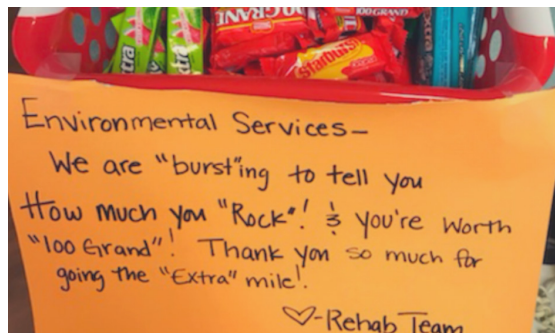 extra
xtra
100 GRAND
100 GRAND
Starburst
extra
Environmental Services-
We are "burst"ing to tell you
How much you "Rock"! & you're worth
"100 Grand"! Thank you so much for
going the "Extra" mile!
♡-Rehab Team